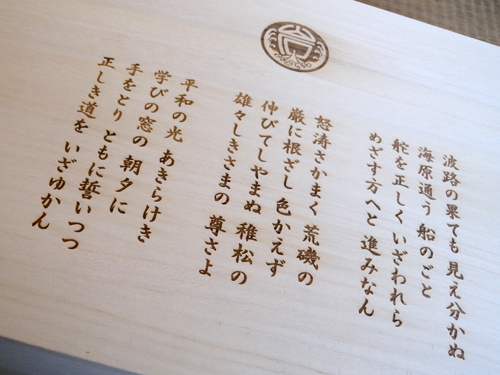 波路の果ても見え分かぬ
海原通う船のごと
舵を正しくいざわれら
めざす方へと進みなん
怒涛さかまく荒磯の
巌に根ざし色かえず
伸びてしやまぬ稚松の
雄々しきさまの尊さよ
平和の光あきらけき
学びの窓の朝夕に
手をとりともに誓いつつ
正しき道をいざゆかん